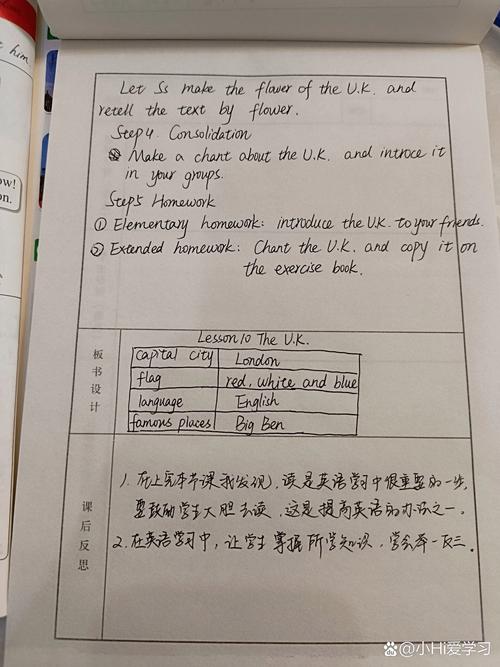 him
Let Ss make the flawer of the U.K. and
retell the text by flower.
Step4. Consolidation
① Make a chant about the U.K. and introce it
in your groups.
Step5 Homework
① Elementary homework: introduce the U.K. to your friends.
② Extended homework: Chant the U.K. and copy it on
the exercise book.
板书设计
Lesson 10 The U.K.
capital city London
flag red, white and blue
language English
famous places Big Ben
课后反思
1. 在上完本节课我发现,读是英语学习中很重要的一步,
要鼓励学生大胆去读,这是提高英语的办法之一。
2. 在英语学习中,让学生掌握所学知识,学会举一反三。
ow!
on.
@小Hi爱学习